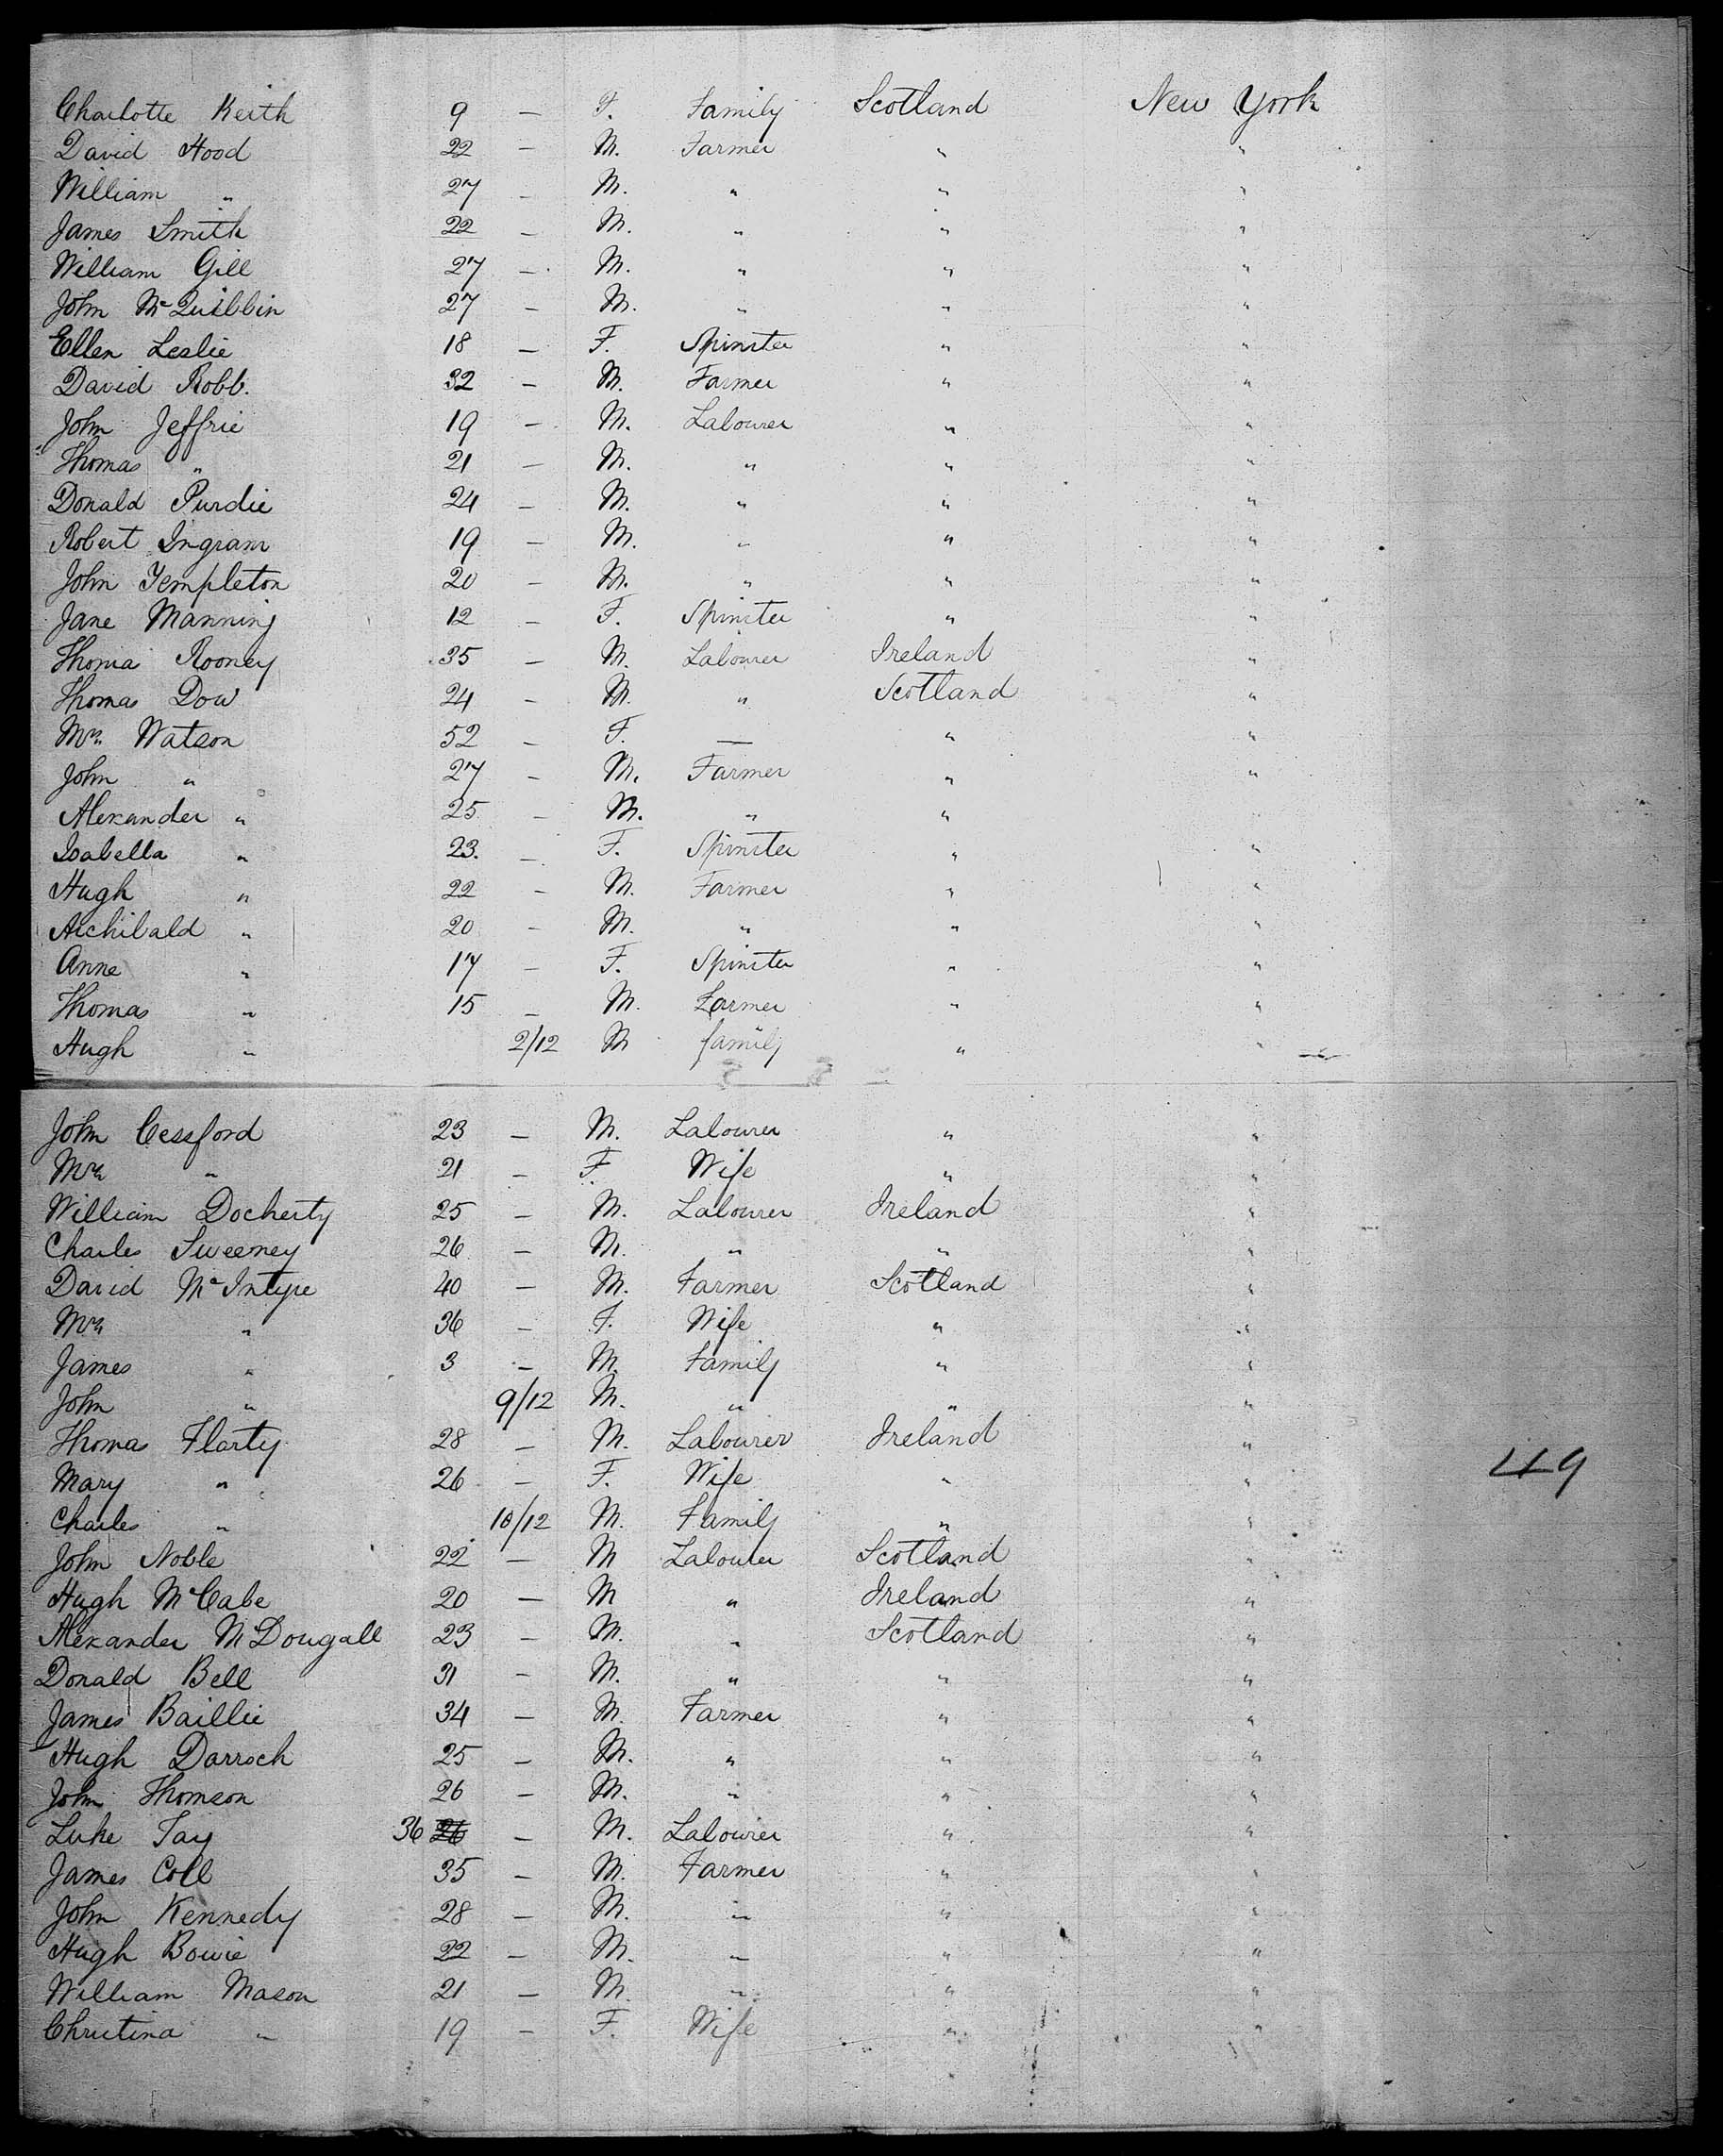 Charlotte Keith 9 — F. Family Scotland New York
David Hood 22 — M. Farmer " "
William " 27 — M. " " "
James Smith 22 — M. " " "
William Gill 27 — M. " " "
John McQuibbin 27 — M. " " "
Ellen Leslie 18 — F. Spinster " "
David Robb. 32 — M. Farmer " "
John Jeffrie 19 — M. Labourer " "
Thomas " 21 — M. " " "
Donald Purdie 24 — M. " " "
Robert Ingram 19 — M. " " "
John Templeton 20 — M. " " "
Jane Manning 12 — F. Spinster " "
Thomas Rooney 35 — M. Labourer Ireland "
Thomas Dow 24 — M. " Scotland "
Mrs Watson 52 — F. — " "
John " 27 — M. Farmer " "
Alexander " 25 — M. " "
Isabella " 23. — F. Spinster " "
Hugh " 22 — M. Farmer " "
Archibald " 20 — M. " " "
Anne " 17 — F. Spinster " "
Thomas " 15 — M. Farmer " "
Hugh " 2/12 M family " "
John Cessford 23 — M. Labourer " "
Mrs " 21 — F. Wife " "
William Docherty 25 — M. Labourer Ireland "
Charles Sweeney 26 — M. " " "
David McIntyre 40 — M. Farmer Scotland "
Mrs " 36 — F. Wife " "
James " 3 — M. Family " "
John " 9/12 M. " " "
Thomas Flarty 28 — M. Labourer Ireland "
Mary " 26 — F. Wife " " 49
Charles " 10/12 M. Family " "
John Noble 22 — M Labourer Scotland "
Hugh McCabe 20 — M " Ireland "
Alexander McDougall 23 — M. " Scotland "
Donald Bell 31 — M. " " "
James Baillie 34 — M. Farmer " "
Hugh Darroch 25 — M. " " "
John Thomson 26 — M. " " "
Luke Tay 36 26 — M. Labourer " "
James Coll 35 — M. Farmer " "
John Kennedy 28 — M. " " "
Hugh Bowie 22 — M. " " "
William Mason 21 — M. " " "
Christina " 19 — F. Wife " "